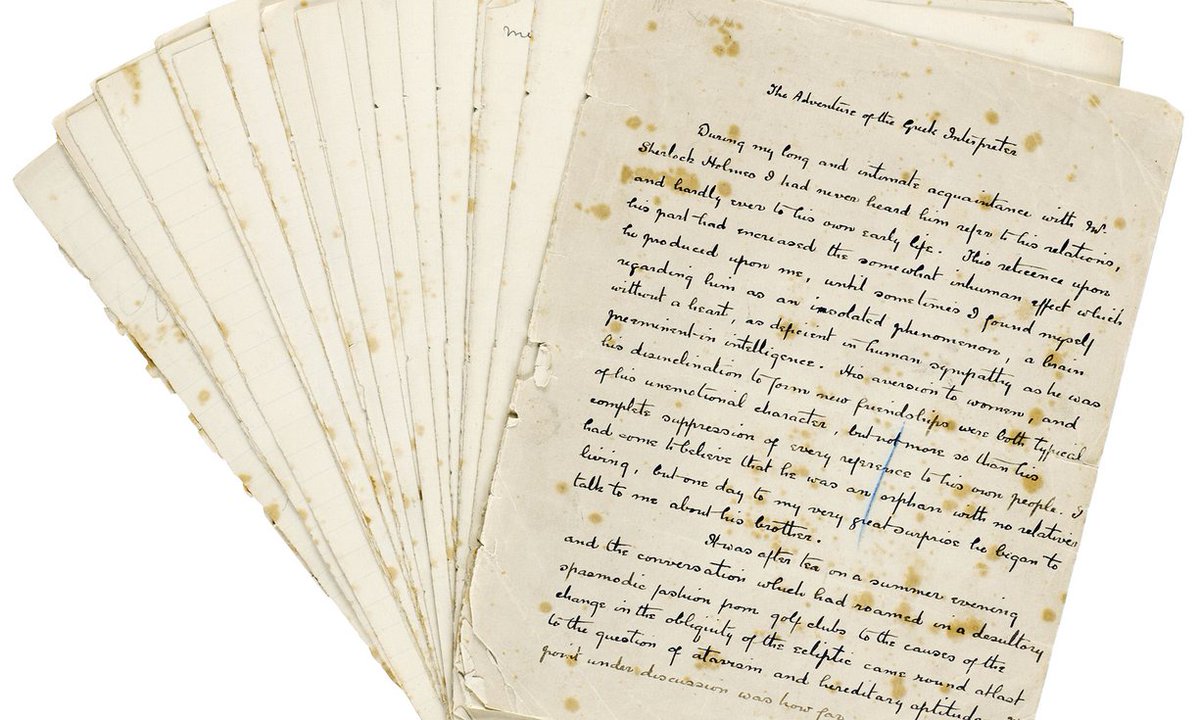 me
The Adventure of the Greek Interpreter
During my long and intimate acquaintance with Mr
Sherlock Holmes I had never heard him refer to his relations,
and hardly ever to his own early life. This reticence upon
his part had increased the somewhat inhuman effect which
he produced upon me, until sometimes I found myself
regarding him as an insolated phenomenon, a brain
without a heart, as deficient in human sympathy as he was
preeminent in intelligence. His aversion to women, and
his disinclination to form new friendships were both typical
of his unemotional character, but not more so than his
complete suppression of every reference to his own people. I
had come to believe that he was an orphan with no relatives
living, but one day to my very great surprise he began to
talk to me about his brother.
It was after tea on a summer evening
and the conversation which had roamed in a desultory
spasmodic fashion from golf clubs to the causes of the
change in the obliquity of the ecliptic came round at last
to the question of atavism and hereditary aptitudes.
point under discussion was how far